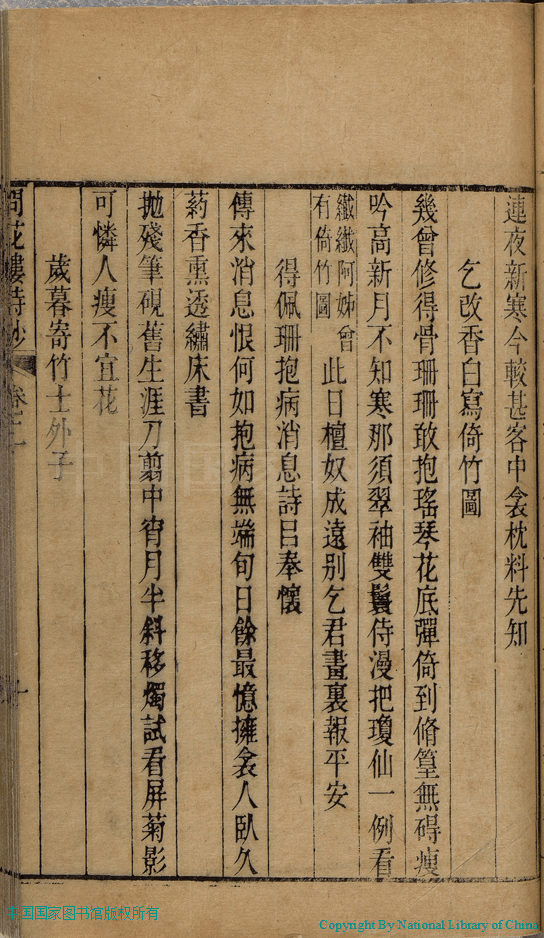 連夜新寒今較甚客中衾枕料先知
乞改香白寫倚竹圖
幾曾修得骨珊珊敢抱瑤琴花底彈倚到脩篁無碍瘦
吟高新月不知寒那須翠袖雙鬟侍漫把瓊仙一例看
纖纖阿姊曾
有倚竹圖
此日檀奴成遠别乞君畫裏報平安
得佩珊抱病消息詩㠯奉懷
傳來消息恨何如抱病無端旬日餘最憶擁衾人臥久
葯香熏透繡床書
拋殘筆硯舊生涯刀翦中宵月半斜移燭試看屏菊影
可憐人瘦不宜花
歲暮寄竹士外子
問花樓詩鈔 卷二
中国国家图书馆版权所有
Copyright By National Library of China